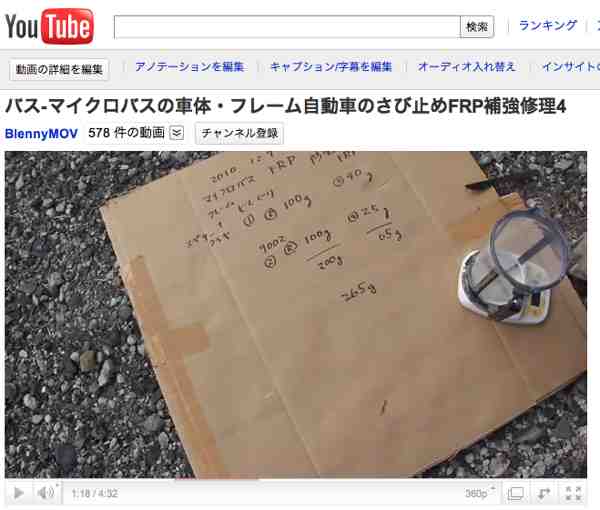 YouTube 検索 ランキング
動画の詳細を編集 アノテーションを編集 キャプション/字幕を編集 オーディオ入れ替え インサイトの
バス-マイクロバスの車体・フレーム自動車のさび止めFRP補強修理4
BlennyMOV 578 件の動画 チャンネル登録
2010 12 9 FRP
マイクロバス FRP
フレーム ③ 40g
① 100g
900Z ④ 25g
② 100g 65g
200g
265g
1:18 / 4:32 360p